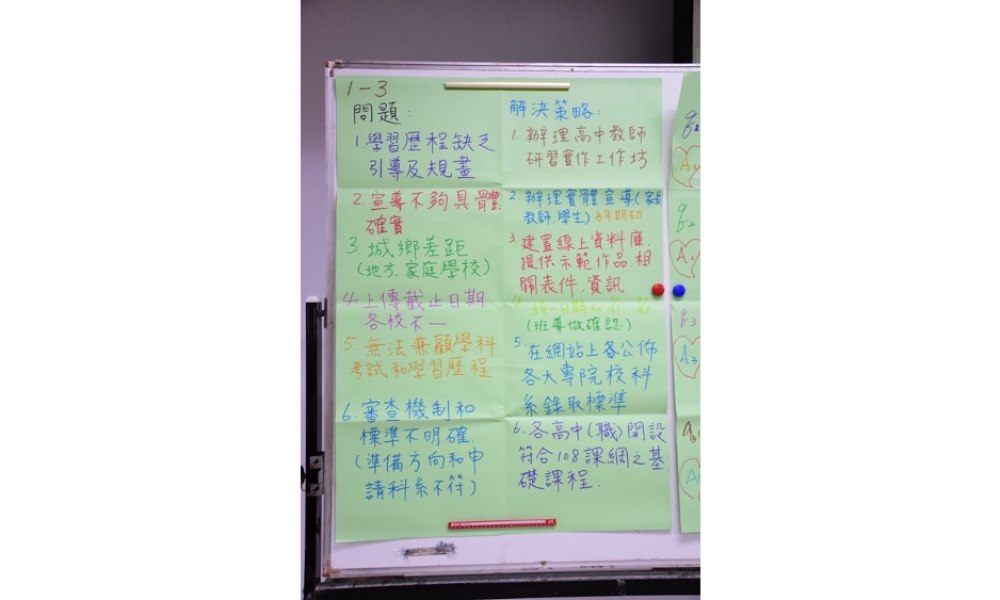 1-3
問題:
1.學習歷程缺乏
引導及規畫
2.宣導不夠具體
確實
3.城鄉差距
(地方.家庭學校)
4.上傳截止日期
各校不一
5.無法兼顧學科
考試和學習歷程
6.審查機制和
標準不明確.
(準備方向和申
請科系不符)
解決策略:
1.辦理高中教師
研習實作工作坊
2.辦理實體宣導(家長
教師.學生)每年期初
3.建置線上資料庫.
提供示範作品.相
關表件.資訊
4.統一日期
(班導做確認.)
5.在網站上各公佈
各大專院校科
系錄取標準
6.各高中(職)開設
符合108課綱之基
礎課程.
g2
A2
g3
A3